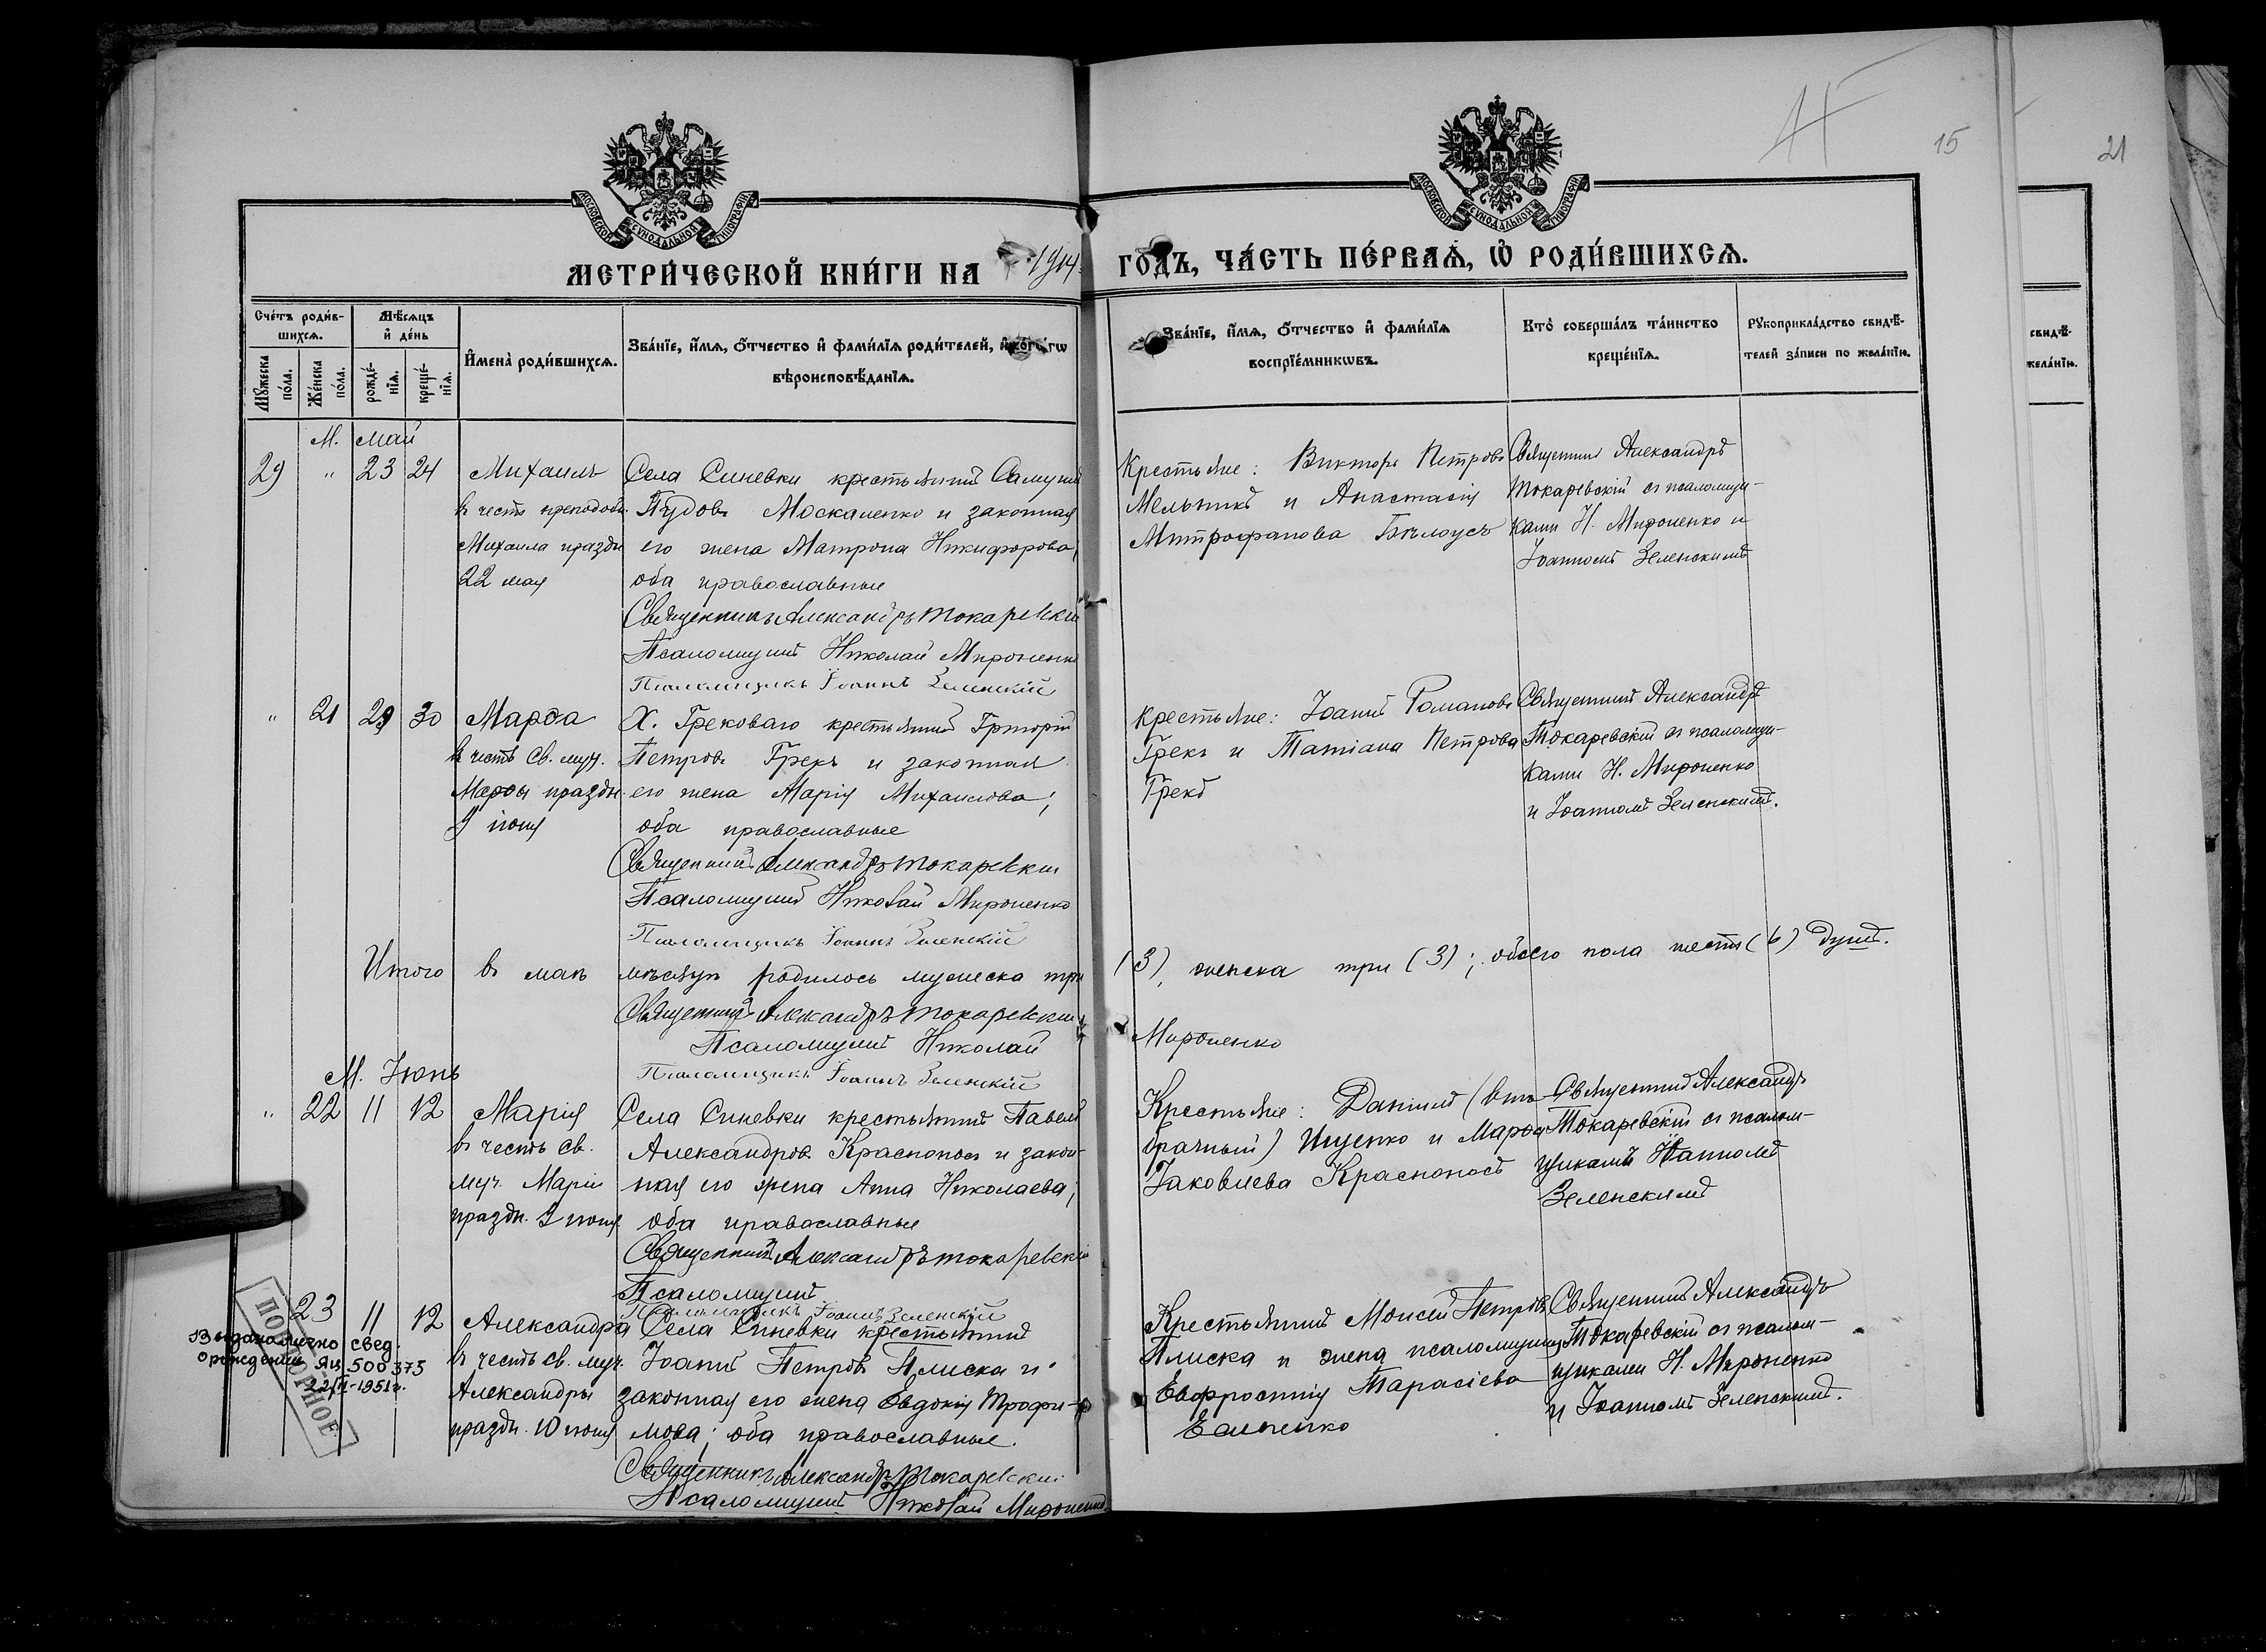 15
21
МОСКОВСКОЙ СѴНОДАЛЬНОЙ ТИПОГРАФІИ
МОСКОВСКОЙ СѴНОДАЛЬНОЙ ТИПОГРАФІИ
МЕТРИ́ЧЕСКОЙ КНИ́ГИ НА 1914
ГОДЪ, ЧА́СТЬ ПЕ́РВАѦ, Ѡ҆ РОДИ́ВШИХСѦ.
Сче́тъ роди́в-
шихсѧ.
Мѣ́сѧцъ
и҆ де́нь
Мꙋ́жеска
по́ла.
Же́нска
по́ла.
рожде́-
нїѧ.
креще́-
нїѧ.
И҆мена̀ роди́вшихсѧ.
Зва́нїе, и҆́мѧ, ѻ҆́тчество и҆ фами́лїѧ роди́телей, и҆ ко́тѡ
вѣроисповѣ́данїѧ.
Зва́нїе, и҆́мѧ, ѻ҆́тчество и҆ фами́лїѧ
воспрїе́мникѡвъ.
Кто̀ соверша́лъ та́инство
креще́нїѧ.
Рꙋкоприкла́дство свидѣ́-
телей за́писи по жела́нїю.
свидѣ́-
жела́нїю.
М. Май
29 " 23 24 Михаилъ
въ честь преподоб.
Михаила праздн
22 мая
Села Синевки крестьянинъ Самуилъ
Пудовъ Москаленко и законная
его жена Матрона Никифорова,
оба православные
Священникъ Александръ Токаревскій
Псаломщикъ Николай Мироненко
Псаломщикъ Іоаннъ Зеленскій
Крестьяне: Викторъ Петровъ
Мельникъ и Анастасія
Митрофанова Бѣлоусъ
Священникъ Александръ
Токаревскій съ псаломщи-
ками Н. Мироненко и
Іоанномъ Зеленскимъ
" 21 29 30 Марѳа
въ честь св. муч.
Марѳы праздн.
9 іюня
Х. Грековаго крестьянинъ Григорій
Петровъ Грекъ и законная
его жена Марія Михаилова;
оба православные
Священникъ Александръ Токаревскій
Псаломщикъ Николай Мироненко
Псаломщикъ Іоаннъ Зеленскій
Крестьяне: Іоаннъ Романовъ
Грекъ и Татіана Петрова
Грекъ
Священникъ Александръ
Токаревскій съ псаломщи-
ками Н. Мироненко
и Іоанномъ Зеленскимъ.
Итого въ маѣ мѣсяцѣ родилось мужеска три
(3), женска три (3); обоего пола шесть (6) душъ.
Священникъ Александръ Токаревскій
Псаломщикъ Николай
Мироненко
Псаломщикъ Іоаннъ Зеленскій
М. Іюнь
" 22 11 12 Марія
въ честь св.
муч. Маріи
праздн. 9 іюня
Села Синевки крестьянинъ Павелъ
Александровъ Краснопосъ и закон-
ная его жена Анна Николаева;
оба православные
Священникъ Александръ Токаревскій
Псаломщикъ
Псаломщикъ Іоаннъ Зеленскій
Крестьяне: Даніилъ (внѣ-
брачный) Ищенко и Марѳа
Іаковлева Краснопосъ
Священникъ Александръ
Токаревскій съ псалом-
щикамъ Іоанномъ
Зеленскимъ
23 11 12 Александра
въ честь св. муч.
Александры
праздн. 10 іюня
Выдано лично свед.
о рождении ЯЦ 500375
1951 г.
ПОВТОРНОЕ
Села Синевки крестьянинъ
Іоаннъ Петровъ Плиска и
законная его жена Евдокія Трофи-
мова; оба православные.
Священникъ Александръ Токаревскій
Псаломщикъ Николай Мироненко
Крестьянинъ Моисей Петровъ
Плиска и жена псаломщика
Евфросинія Тарасіева
Священникъ Александръ
Токаревскій съ псалом-
щиками Н. Мироненко
и Іоанномъ Зеленскимъ.